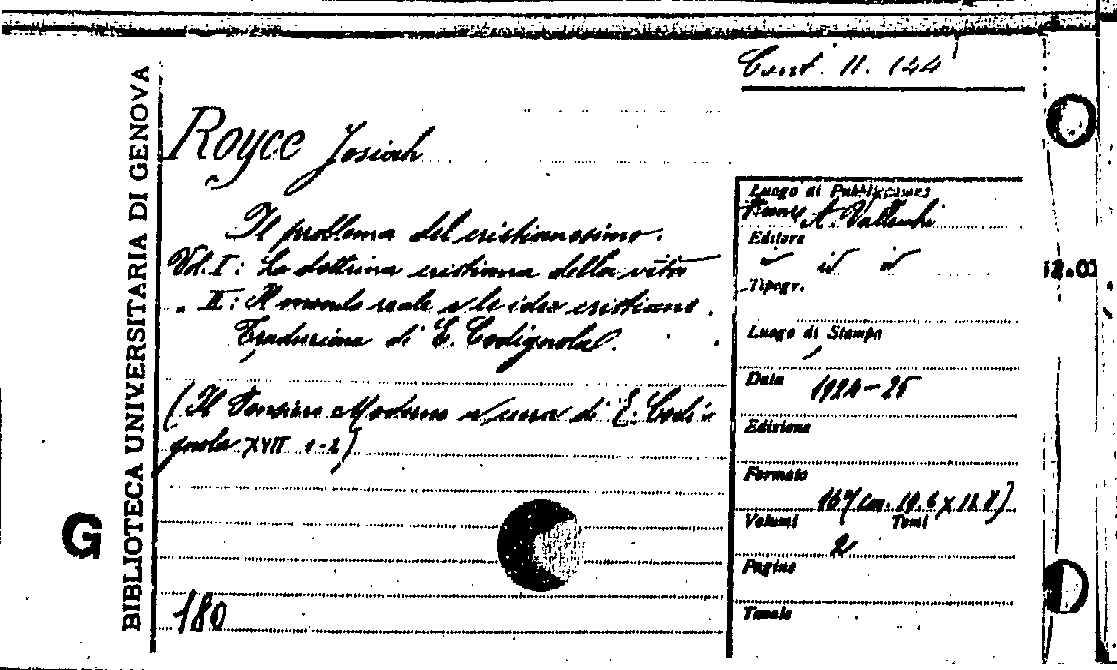 Cont. 11. 144
BIBLIOTECA UNIVERSITARIA DI GENOVA
G
Royce Josiah
Il problema del cristianesimo.
Vol. I: La dottrina cristiana della vita
" II: Il mondo reale e le idee cristiane.
Traduzione di E. Codignola.
(Il Pensiero Moderno a cura di E. Codi-
gnola XVII 1-2)
180
Luogo di Pubblicazione
Firenze A. Vallecchi
Editore
id
Tipogr.
Luogo di Stampa
Data 1924-25
Edizione
Formato
16° (cm. 19.6 x 12.8)
Volumi Tomi
2
Pagine
Tavole